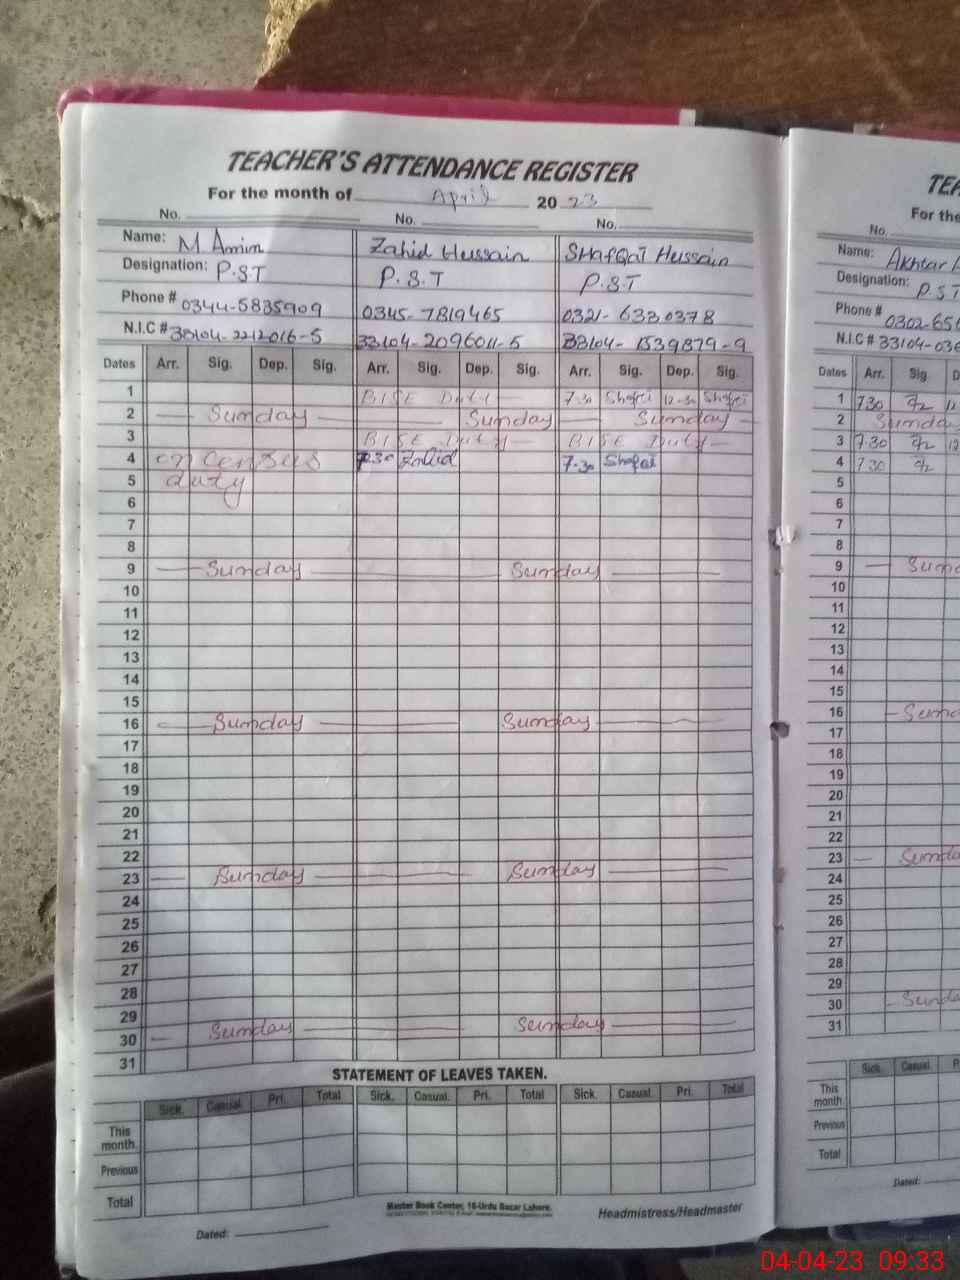 TEACHER'S ATTENDANCE REGISTER
For the month of April 20 23
No. No. No.
Name: M Amin Zahid Hussain Shafqat Hussain
Designation: P.S.T P.S.T P.S.T
Phone # 0344-5835909 0345-7819465 0321-6330378
N.I.C # 38104-2212016-5 33104-2096011-5 33104-1539879-9
Dates Arr. Sig. Dep. Sig. Arr. Sig. Dep. Sig. Arr. Sig. Dep. Sig.
1 BISE Duty 7-30 Shafqi 12-30 Shafqi
2 Sunday Sunday Sunday
3 BISE Duty BISE Duty
4 on census 7-30 Zahid 7-30 Shafqi
5 duty
6
7
8
9 Sunday Sunday
10
11
12
13
14
15
16 Sunday Sunday
17
18
19
20
21
22
23 Sunday Sunday
24
25
26
27
28
29
30 Sunday Sunday
31
STATEMENT OF LEAVES TAKEN.
Sick. Casual. Pri. Total Sick. Casual. Pri. Total Sick. Casual. Pri. Total
This month.
Previous
Total
Master Book Center, 16-Urdu Bazar Lahore.
Dated: Headmistress/Headmaster
TEA
For the
No.
Name: Akhtar A
Designation: P.ST
Phone # 0302-656
N.I.C # 33104-036
Dates Arr. Sig. D
1 7.30 12
2 Sunday
3 7.30 12
4 7.30
5
6
7
8
9 Sund
10
11
12
13
14
15
16 Sund
17
18
19
20
21
22
23 Sunda
24
25
26
27
28
29
30 Sunda
31
Sick. Casual. P
This month.
Previous
Total
Dated:
04-04-23 09:33